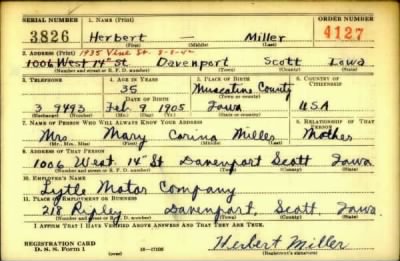 SERIAL NUMBER 1. NAME (Print) ORDER NUMBER
3826 Herbert — Miller 4127
(First) (Middle) (Last)
2. ADDRESS (Print) 1935 Vine St.
1006 West 14th St Davenport Scott Iowa
(Number and street or R. F. D. number) (Town) (County) (State)
3. TELEPHONE 4. AGE IN YEARS 5. PLACE OF BIRTH 6. COUNTRY OF CITIZENSHIP
35 Muscatine County
DATE OF BIRTH (Town or county)
3 9493 Feb. 9 1905 Iowa USA
(Exchange) (Number) (Mo.) (Day) (Yr.) (State or country)
7. NAME OF PERSON WHO WILL ALWAYS KNOW YOUR ADDRESS 8. RELATIONSHIP OF THAT PERSON
Mrs. Mary Corina Miller Mother
(Mr., Mrs., Miss) (First) (Middle) (Last)
9. ADDRESS OF THAT PERSON
1006 West 14th St Davenport Scott Iowa
(Number and street or R. F. D. number) (Town) (County) (State)
10. EMPLOYER'S NAME
Lytle Motor Company
11. PLACE OF EMPLOYMENT OR BUSINESS
218 Ripley Davenport, Scott, Iowa.
(Number and street or R. F. D. number) (Town) (County) (State)
I AFFIRM THAT I HAVE VERIFIED ABOVE ANSWERS AND THAT THEY ARE TRUE.
REGISTRATION CARD
D. S. S. Form 1 Herbert Miller
(Registrant's signature)